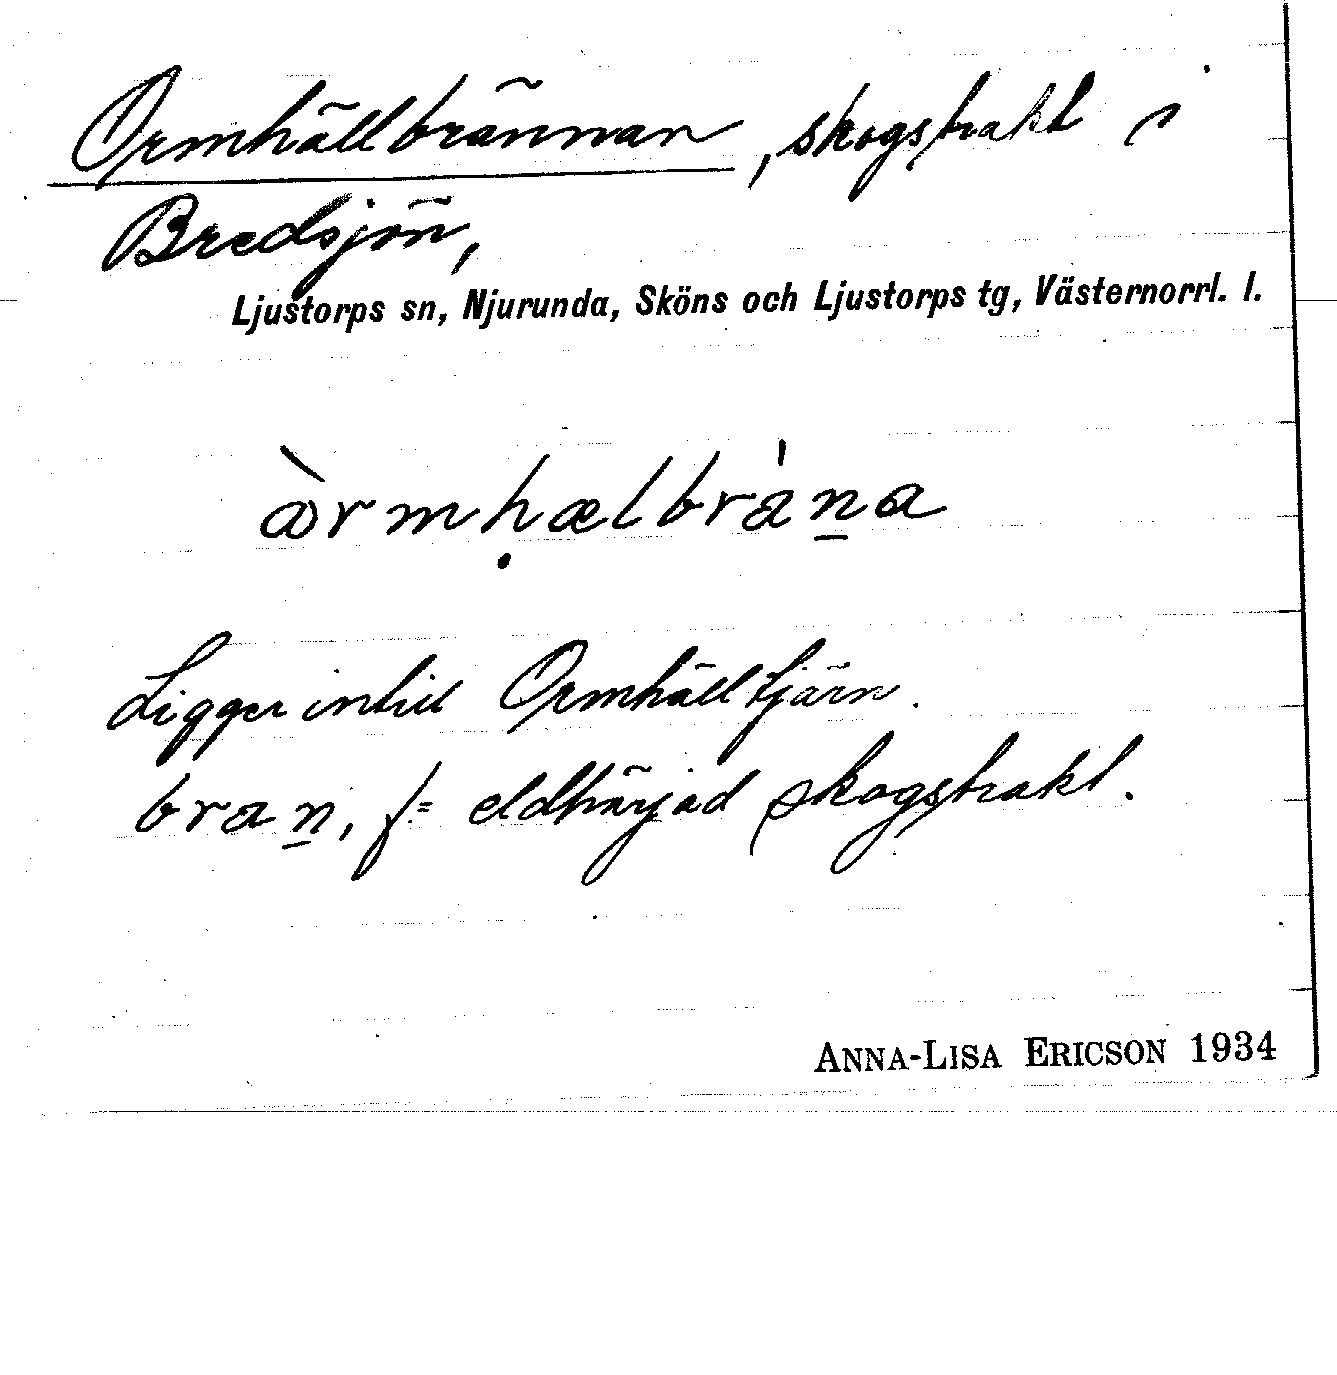 Ormhällbrännan, skogstrakt i
Bredsjön,
Ljustorps sn, Njurunda, Sköns och Ljustorps tg, Västernorrl. l.
ὰrmḥælbràṉa
Ligger intill Ormhälltjärn.
braṉ, f = eldhärjad skogstrakt.
ANNA-LISA ERICSON 1934